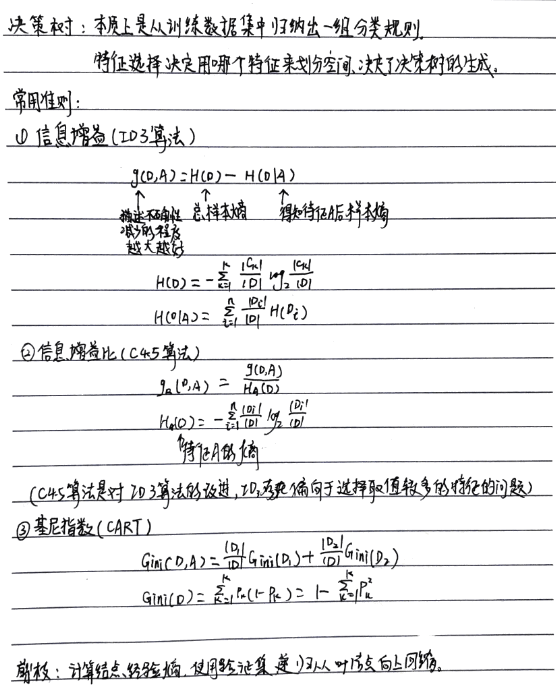 决策树：本质上是从训练数据集中归纳出一组分类规则。
特征选择决定用哪个特征来划分空间、决定了决策树的生成。
常用准则：
① 信息增益(ID3算法)
g(D,A)=H(D)-H(D|A)
描述不确定性 总样本熵 得知特征A后样本熵
减少的程度
越大越好
H(D) = -∑_{k=1}^{K} |C_k|/|D| log_2 |C_k|/|D|
H(D|A) = ∑_{i=1}^{n} |D_i|/|D| H(D_i)
② 信息增益比(C4.5算法)
g_R(D,A) = g(D,A)/H_A(D)
H_A(D) = -∑_{i=1}^{n} |D_i|/|D| log_2 |D_i|/|D|
特征A的熵
(C4.5算法是对ID3算法的改进,ID3 偏向于选择取值较多的特征的问题)
③ 基尼指数(CART)
Gini(D,A) = |D_1|/|D| Gini(D_1) + |D_2|/|D| Gini(D_2)
Gini(D) = ∑_{k=1}^{K} P_k(1-P_k) = 1 - ∑_{k=1}^{K} P_k^2
剪枝：计算结点经验熵、使用验证集递归从叶结点向上回缩。